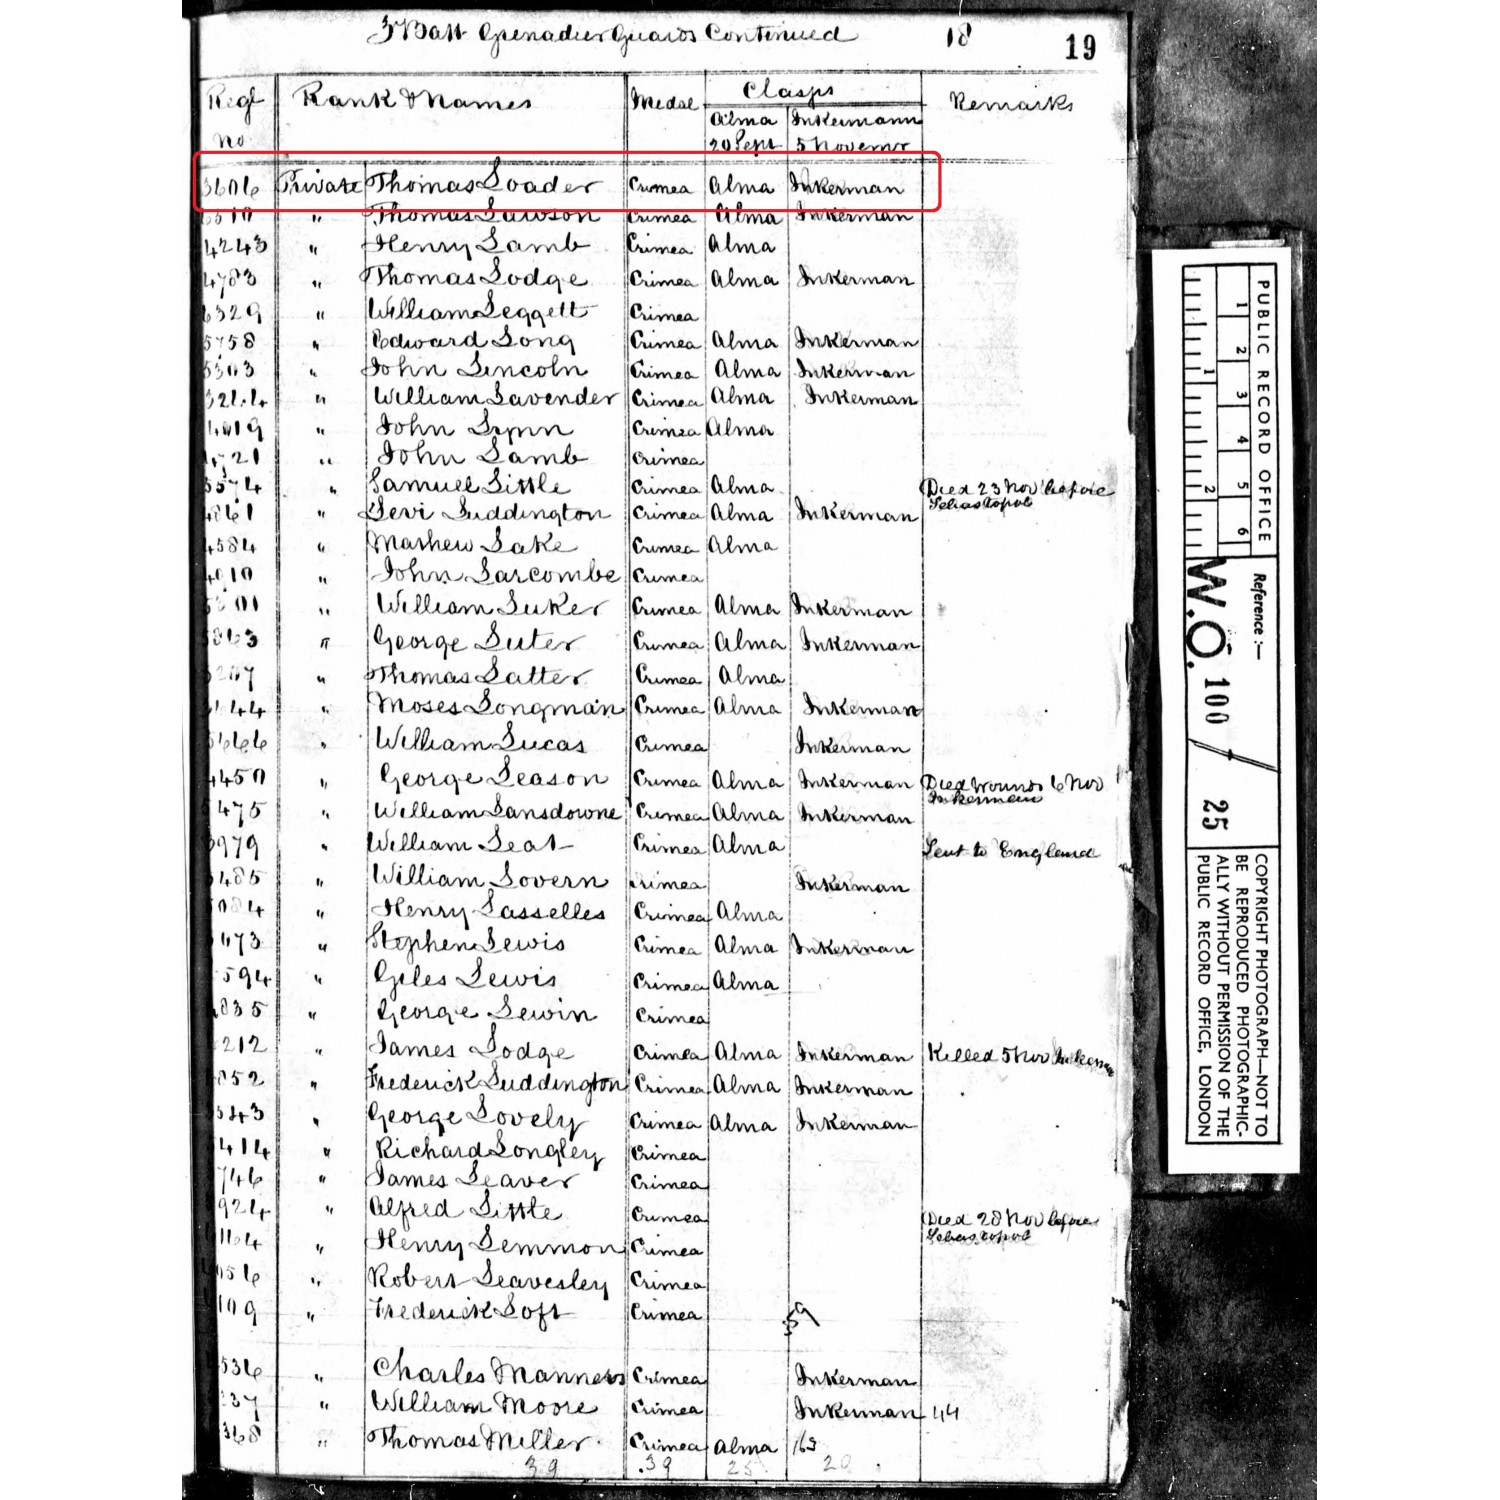 3 Batt Grenadier Guards Continued 18 19
Regl No Rank & Names Medal Clasps Remarks
Alma Inkermann
20 Sept 5 Novemr
3606 Private Thomas Loader Crimea Alma Inkerman
" Thomas Lawson Crimea Alma Inkerman
4243 " Henry Lamb Crimea Alma
4783 " Thomas Lodge Crimea Alma Inkerman
6329 " William Leggett Crimea
5758 " Edward Long Crimea Alma Inkerman
5303 " John Lincoln Crimea Alma Inkerman
" William Lavender Crimea Alma Inkerman
" John Lynn Crimea Alma
" John Lamb Crimea
5574 " Samuel Little Crimea Alma Died 23 Nov before Sebastopol
4861 " Levi Luddington Crimea Alma Inkerman
4584 " Mathew Lake Crimea Alma
4010 " John Larcombe Crimea
" William Luker Crimea Alma Inkerman
" George Luter Crimea Alma Inkerman
" Thomas Latter Crimea Alma
" Moses Longman Crimea Alma Inkerman
5666 " William Lucas Crimea Inkerman
4450 " George Leason Crimea Alma Inkerman Died wounds 6 Nov Inkerman
5475 " William Lansdowne Crimea Alma Inkerman
" William Leat Crimea Alma Sent to England
" William Lovern Crimea Inkerman
" Henry Lasselles Crimea Alma
" Stephen Lewis Crimea Alma Inkerman
594 " Giles Lewis Crimea Alma
835 " George Lewin Crimea
212 " James Lodge Crimea Alma Inkerman Killed 5 Nov Inkerman
852 " Frederick Luddington Crimea Alma Inkerman
343 " George Lovely Crimea Alma Inkerman
414 " Richard Longley Crimea
746 " James Leaver Crimea
924 " Alfred Little Crimea Died 28 Nov before Sebastopol
" Henry Lemmon Crimea
056 " Robert Leavesley Crimea
109 " Frederick Loft Crimea 59
536 " Charles Manners Crimea Inkerman
37 " William Moore Crimea Inkerman 44
368 " Thomas Miller Crimea Alma 163
39 39 25 20
PUBLIC RECORD OFFICE
1 2 3 4 5 6
1 2
Reference :—
W.O. 100 / 25
COPYRIGHT PHOTOGRAPH—NOT TO
BE REPRODUCED PHOTOGRAPHIC-
ALLY WITHOUT PERMISSION OF THE
PUBLIC RECORD OFFICE, LONDON